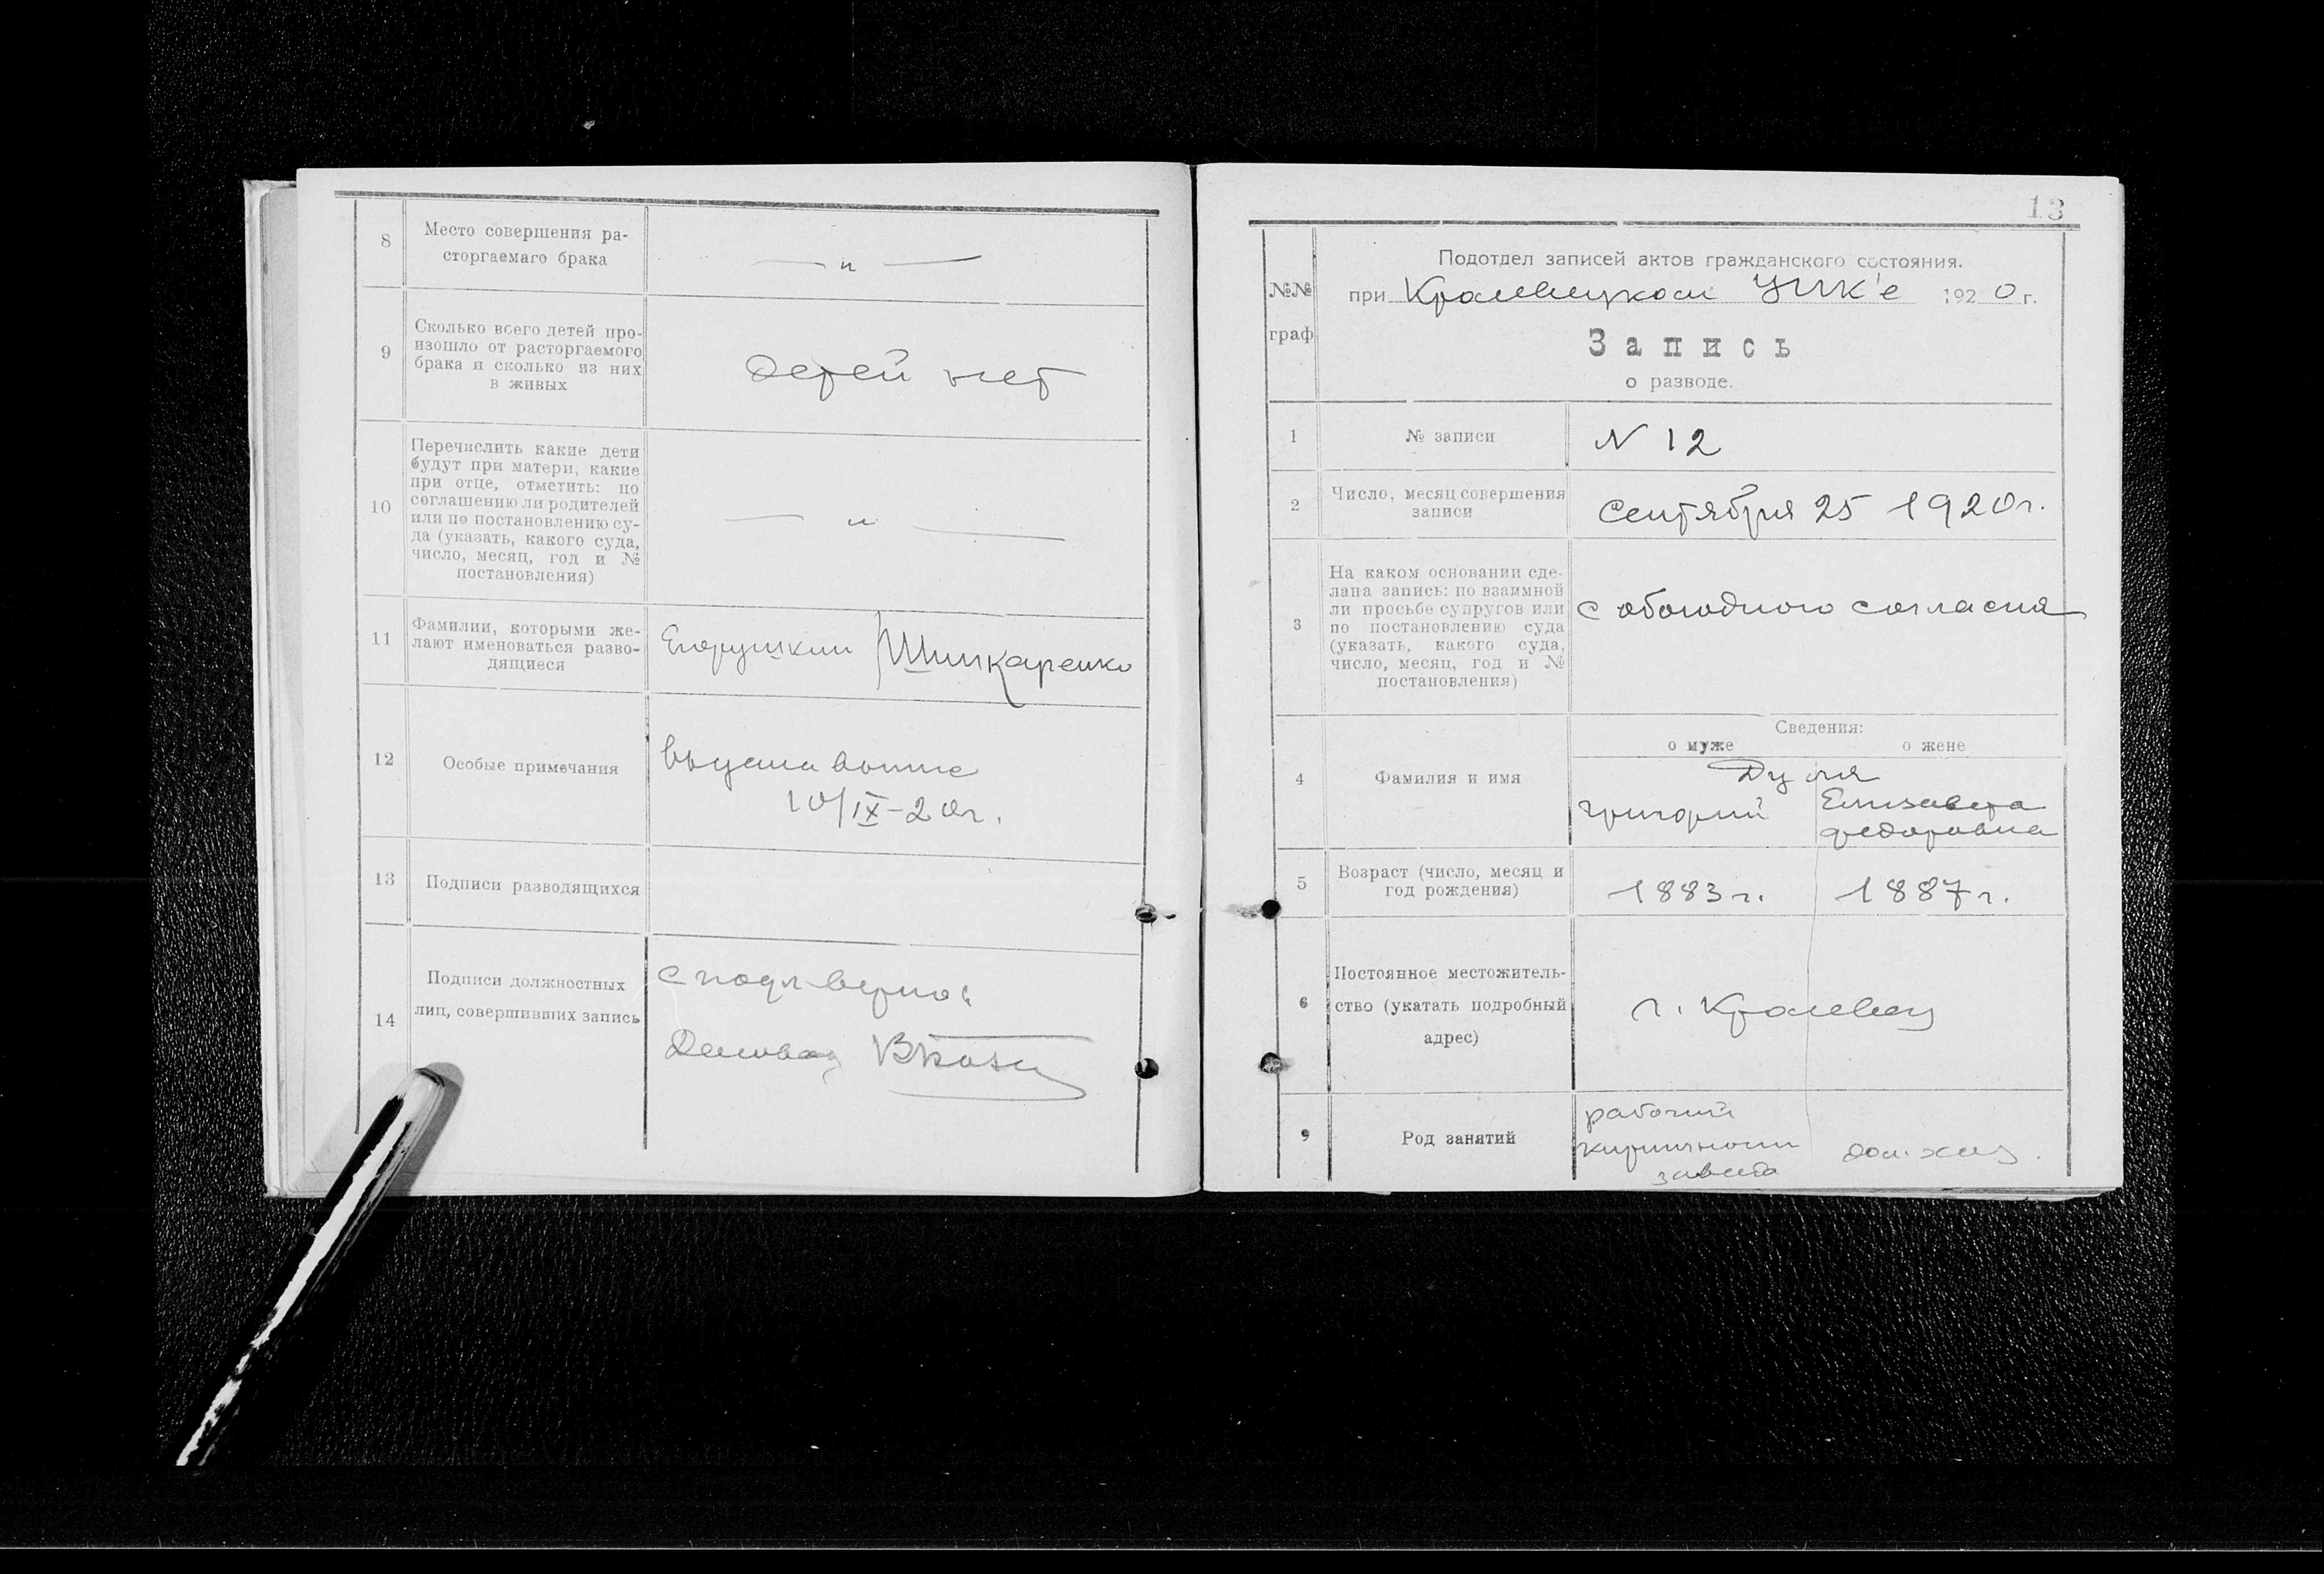 8
Место совершения ра-
сторгаемаго брака
— „ —
9
Сколько всего детей про-
изошло от расторгаемого
брака и сколько из них
в живых
детей нет
10
Перечислить какие дети
будут при матери, какие
при отце, отметить: по
соглашению ли родителей
или по постановлению су-
да (указать, какого суда,
число, месяц, год и №
постановления)
— „ —
11
Фамилии, которыми же-
лают именоваться разво-
дящиеся
Шинкаренко
12
Особые примечания
10/IX-20г.
13
Подписи разводящихся
14
Подписи должностных
лиц, совершивших запись
с подл верно:
Деловод
13
№№
граф
Подотдел записей актов гражданского состояния.
при Кролевецком УИК'е 1920 г.
Запись
о разводе.
1
№ записи
N 12
2
Число, месяц совершения
записи
Сентября 25 1920г.
3
На каком основании сде-
лана запись: по взаимной
ли просьбе супругов или
по постановлению суда
(указать, какого суда,
число, месяц, год и №
постановления)
с обоюдного согласия
Сведения:
о муже
о жене
4
Фамилия и имя
Дуля
Григорий
Елизавета
Федоровна
5
Возраст (число, месяц и
год рождения)
1883 г.
1887 г.
6
Постоянное местожитель-
ство (укатать подробный
адрес)
г. Кролевец
9
Род занятий
рабочий
кирпичного
завода
дом. хоз.